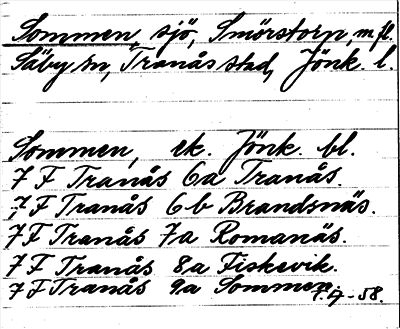 Sommen, sjö, Smörstorp, m fl.
Säby sn, Tranås stad, Jönk. l.
Sommen, ek. Jönk. bl.
7 F Tranås 6a Tranås.
7 F Tranås 6b Brandsnäs.
7 F Tranås 7a Romanäs.
7 F Tranås 8a Fiskevik.
7 F Tranås 9a Sommen
58.